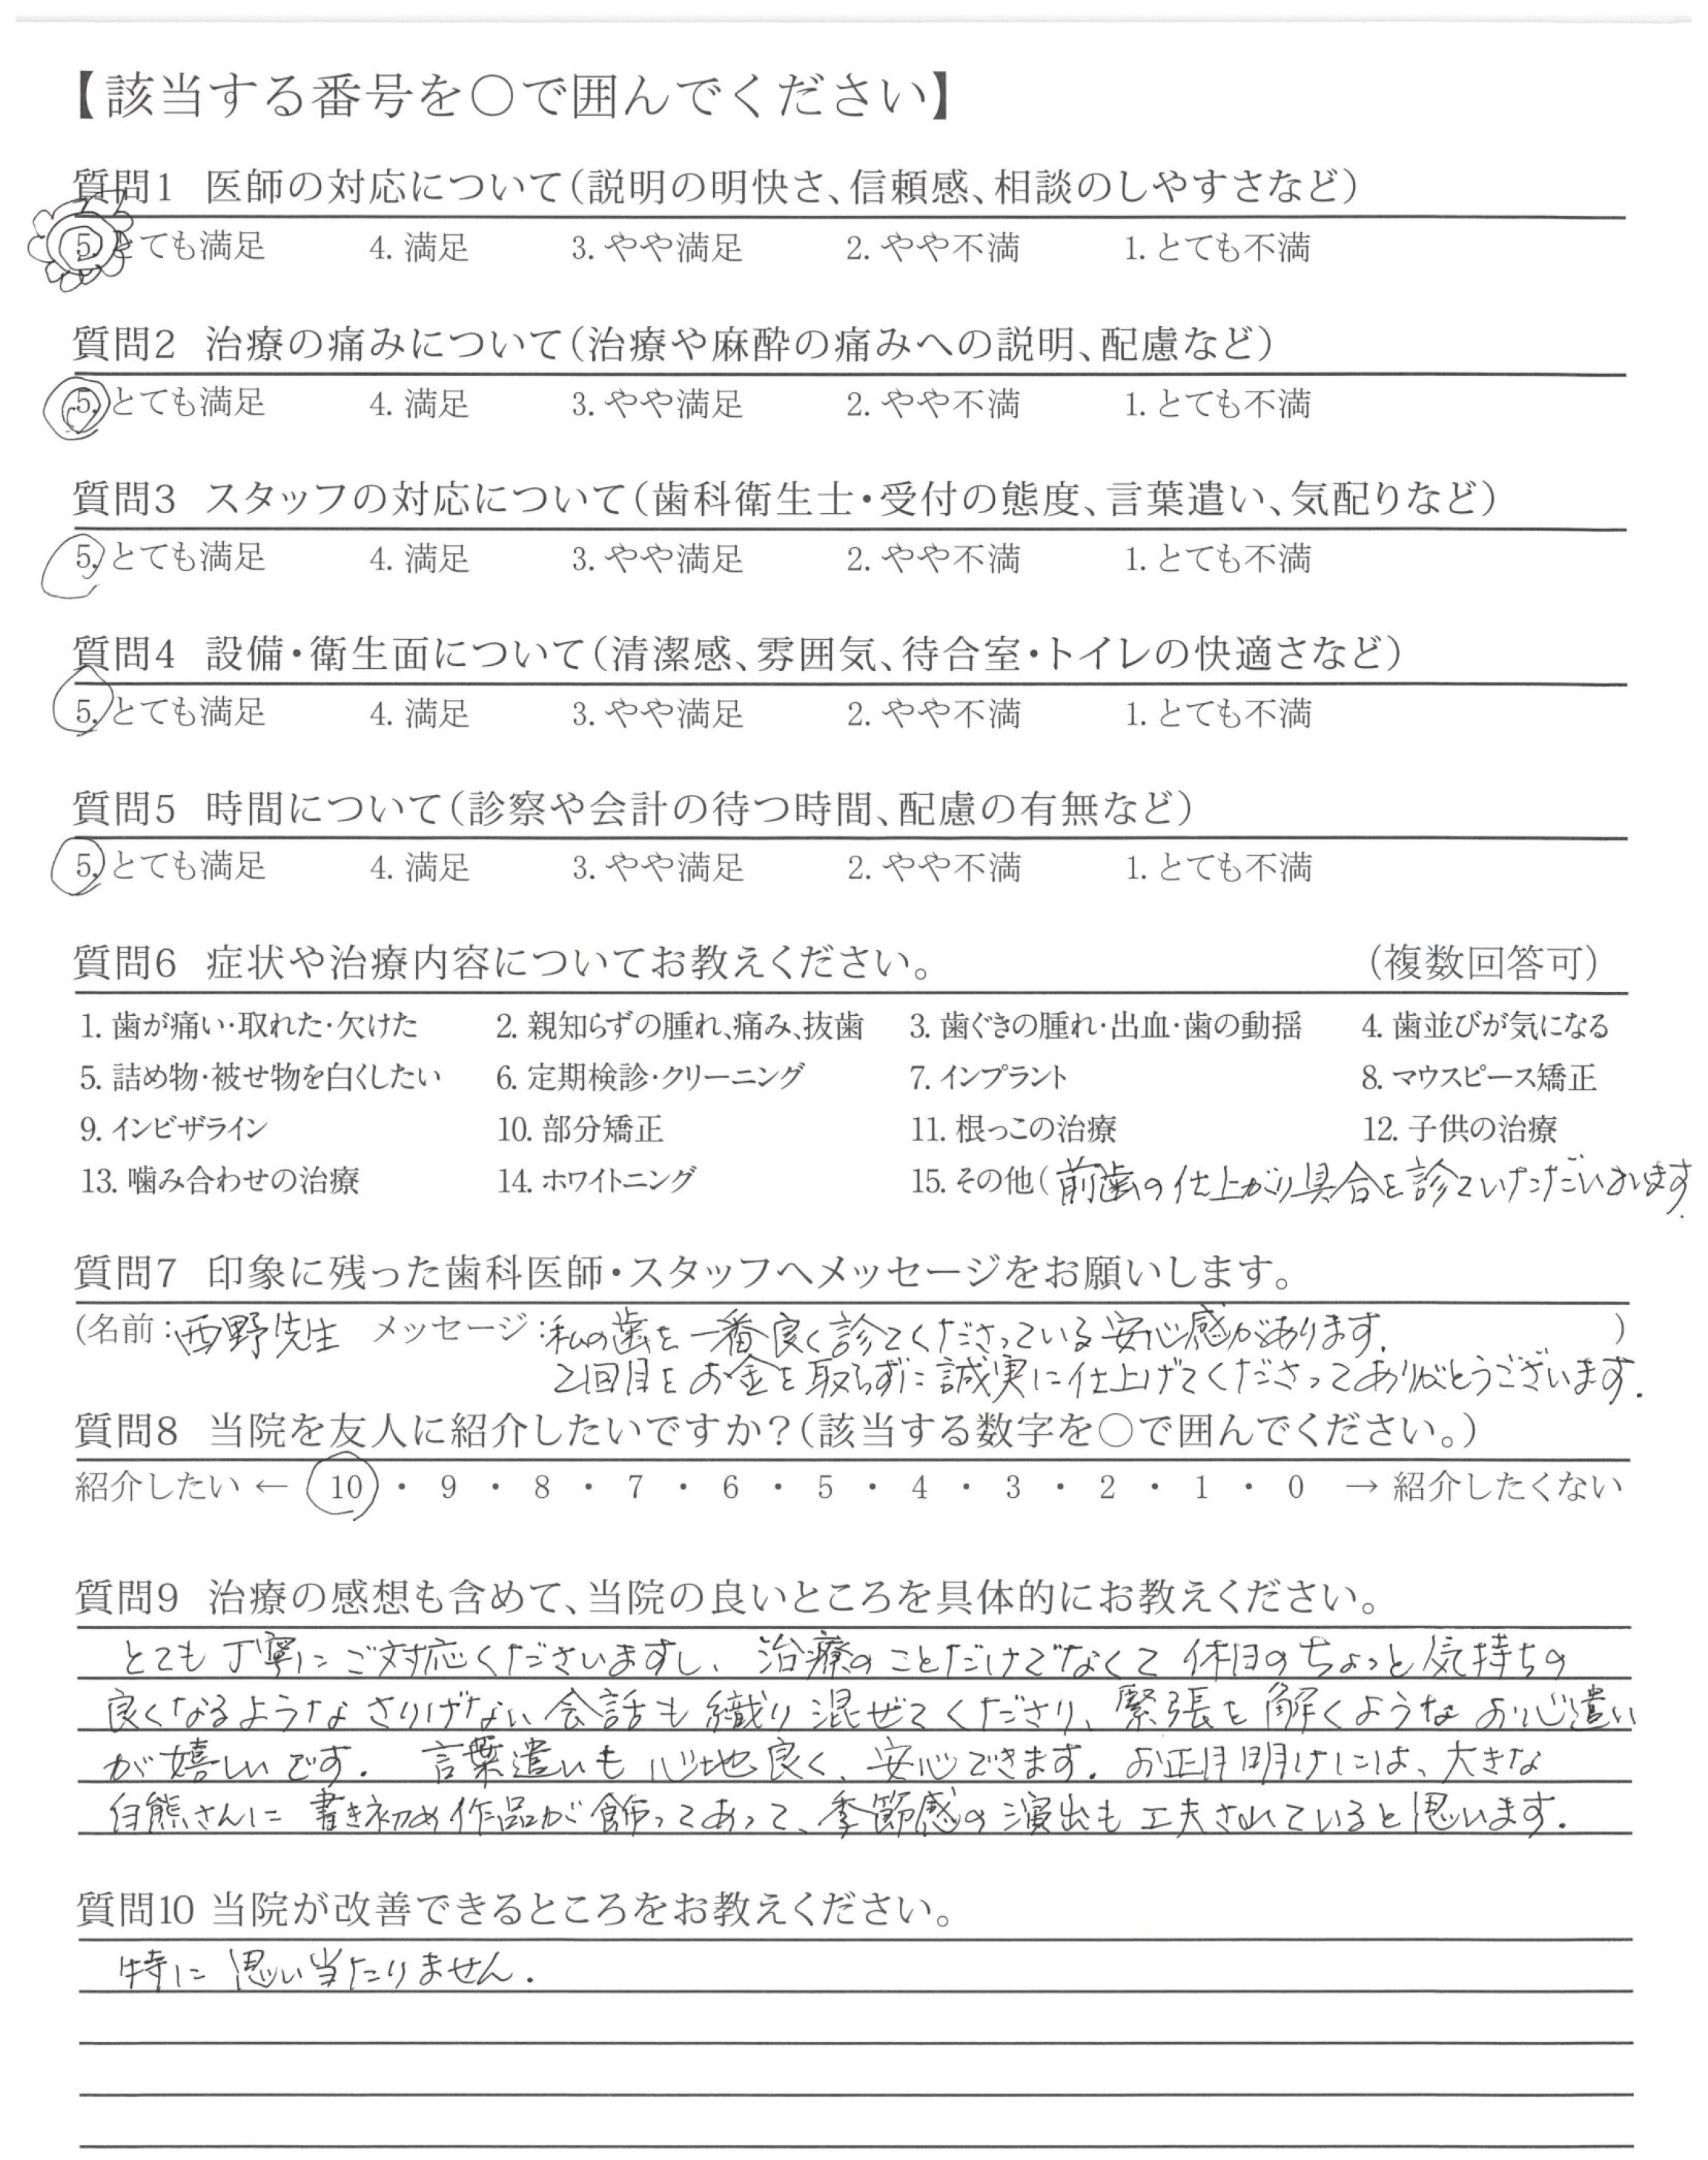 【該当する番号を〇で囲んでください】
質問1 医師の対応について(説明の明快さ、信頼感、相談のしやすさなど)
5. とても満足 4. 満足 3. やや満足 2. やや不満 1. とても不満
質問2 治療の痛みについて(治療や麻酔の痛みへの説明、配慮など)
5. とても満足 4. 満足 3. やや満足 2. やや不満 1. とても不満
質問3 スタッフの対応について(歯科衛生士・受付の態度、言葉遣い、気配りなど)
5. とても満足 4. 満足 3. やや満足 2. やや不満 1. とても不満
質問4 設備・衛生面について(清潔感、雰囲気、待合室・トイレの快適さなど)
5. とても満足 4. 満足 3. やや満足 2. やや不満 1. とても不満
質問5 時間について(診察や会計の待つ時間、配慮の有無など)
5. とても満足 4. 満足 3. やや満足 2. やや不満 1. とても不満
質問6 症状や治療内容についてお教えください。 (複数回答可)
1. 歯が痛い・取れた・欠けた 2. 親知らずの腫れ、痛み、抜歯 3. 歯ぐきの腫れ・出血・歯の動揺 4. 歯並びが気になる
5. 詰め物・被せ物を白くしたい 6. 定期検診・クリーニング 7. インプラント 8. マウスピース矯正
9. インビザライン 10. 部分矯正 11. 根っこの治療 12. 子供の治療
13. 噛み合わせの治療 14. ホワイトニング 15. その他(前歯の仕上がり具合を診ていただいています.
質問7 印象に残った歯科医師・スタッフへメッセージをお願いします。
(名前:西野先生 メッセージ:私の歯を一番良く診てくださっている安心感があります. )
2回目をお金を取らずに誠実に仕上げてくださってありがとうございます.
質問8 当院を友人に紹介したいですか?(該当する数字を〇で囲んでください。)
紹介したい ← 10 ・ 9 ・ 8 ・ 7 ・ 6 ・ 5 ・ 4 ・ 3 ・ 2 ・ 1 ・ 0 → 紹介したくない
質問9 治療の感想も含めて、当院の良いところを具体的にお教えください。
とても丁寧にご対応くださいますし、治療のことだけでなくて休日のちょっと気持ちの
良くなるようなさりげない会話も織り混ぜてくださり、緊張を解くようなお心遣い
が嬉しいです. 言葉遣いも心地良く、安心できます. お正月明けには、大きな
白熊さんに書き初め作品が飾ってあって、季節感の演出も工夫されていると思います.
質問10 当院が改善できるところをお教えください。
特に思い当たりません.